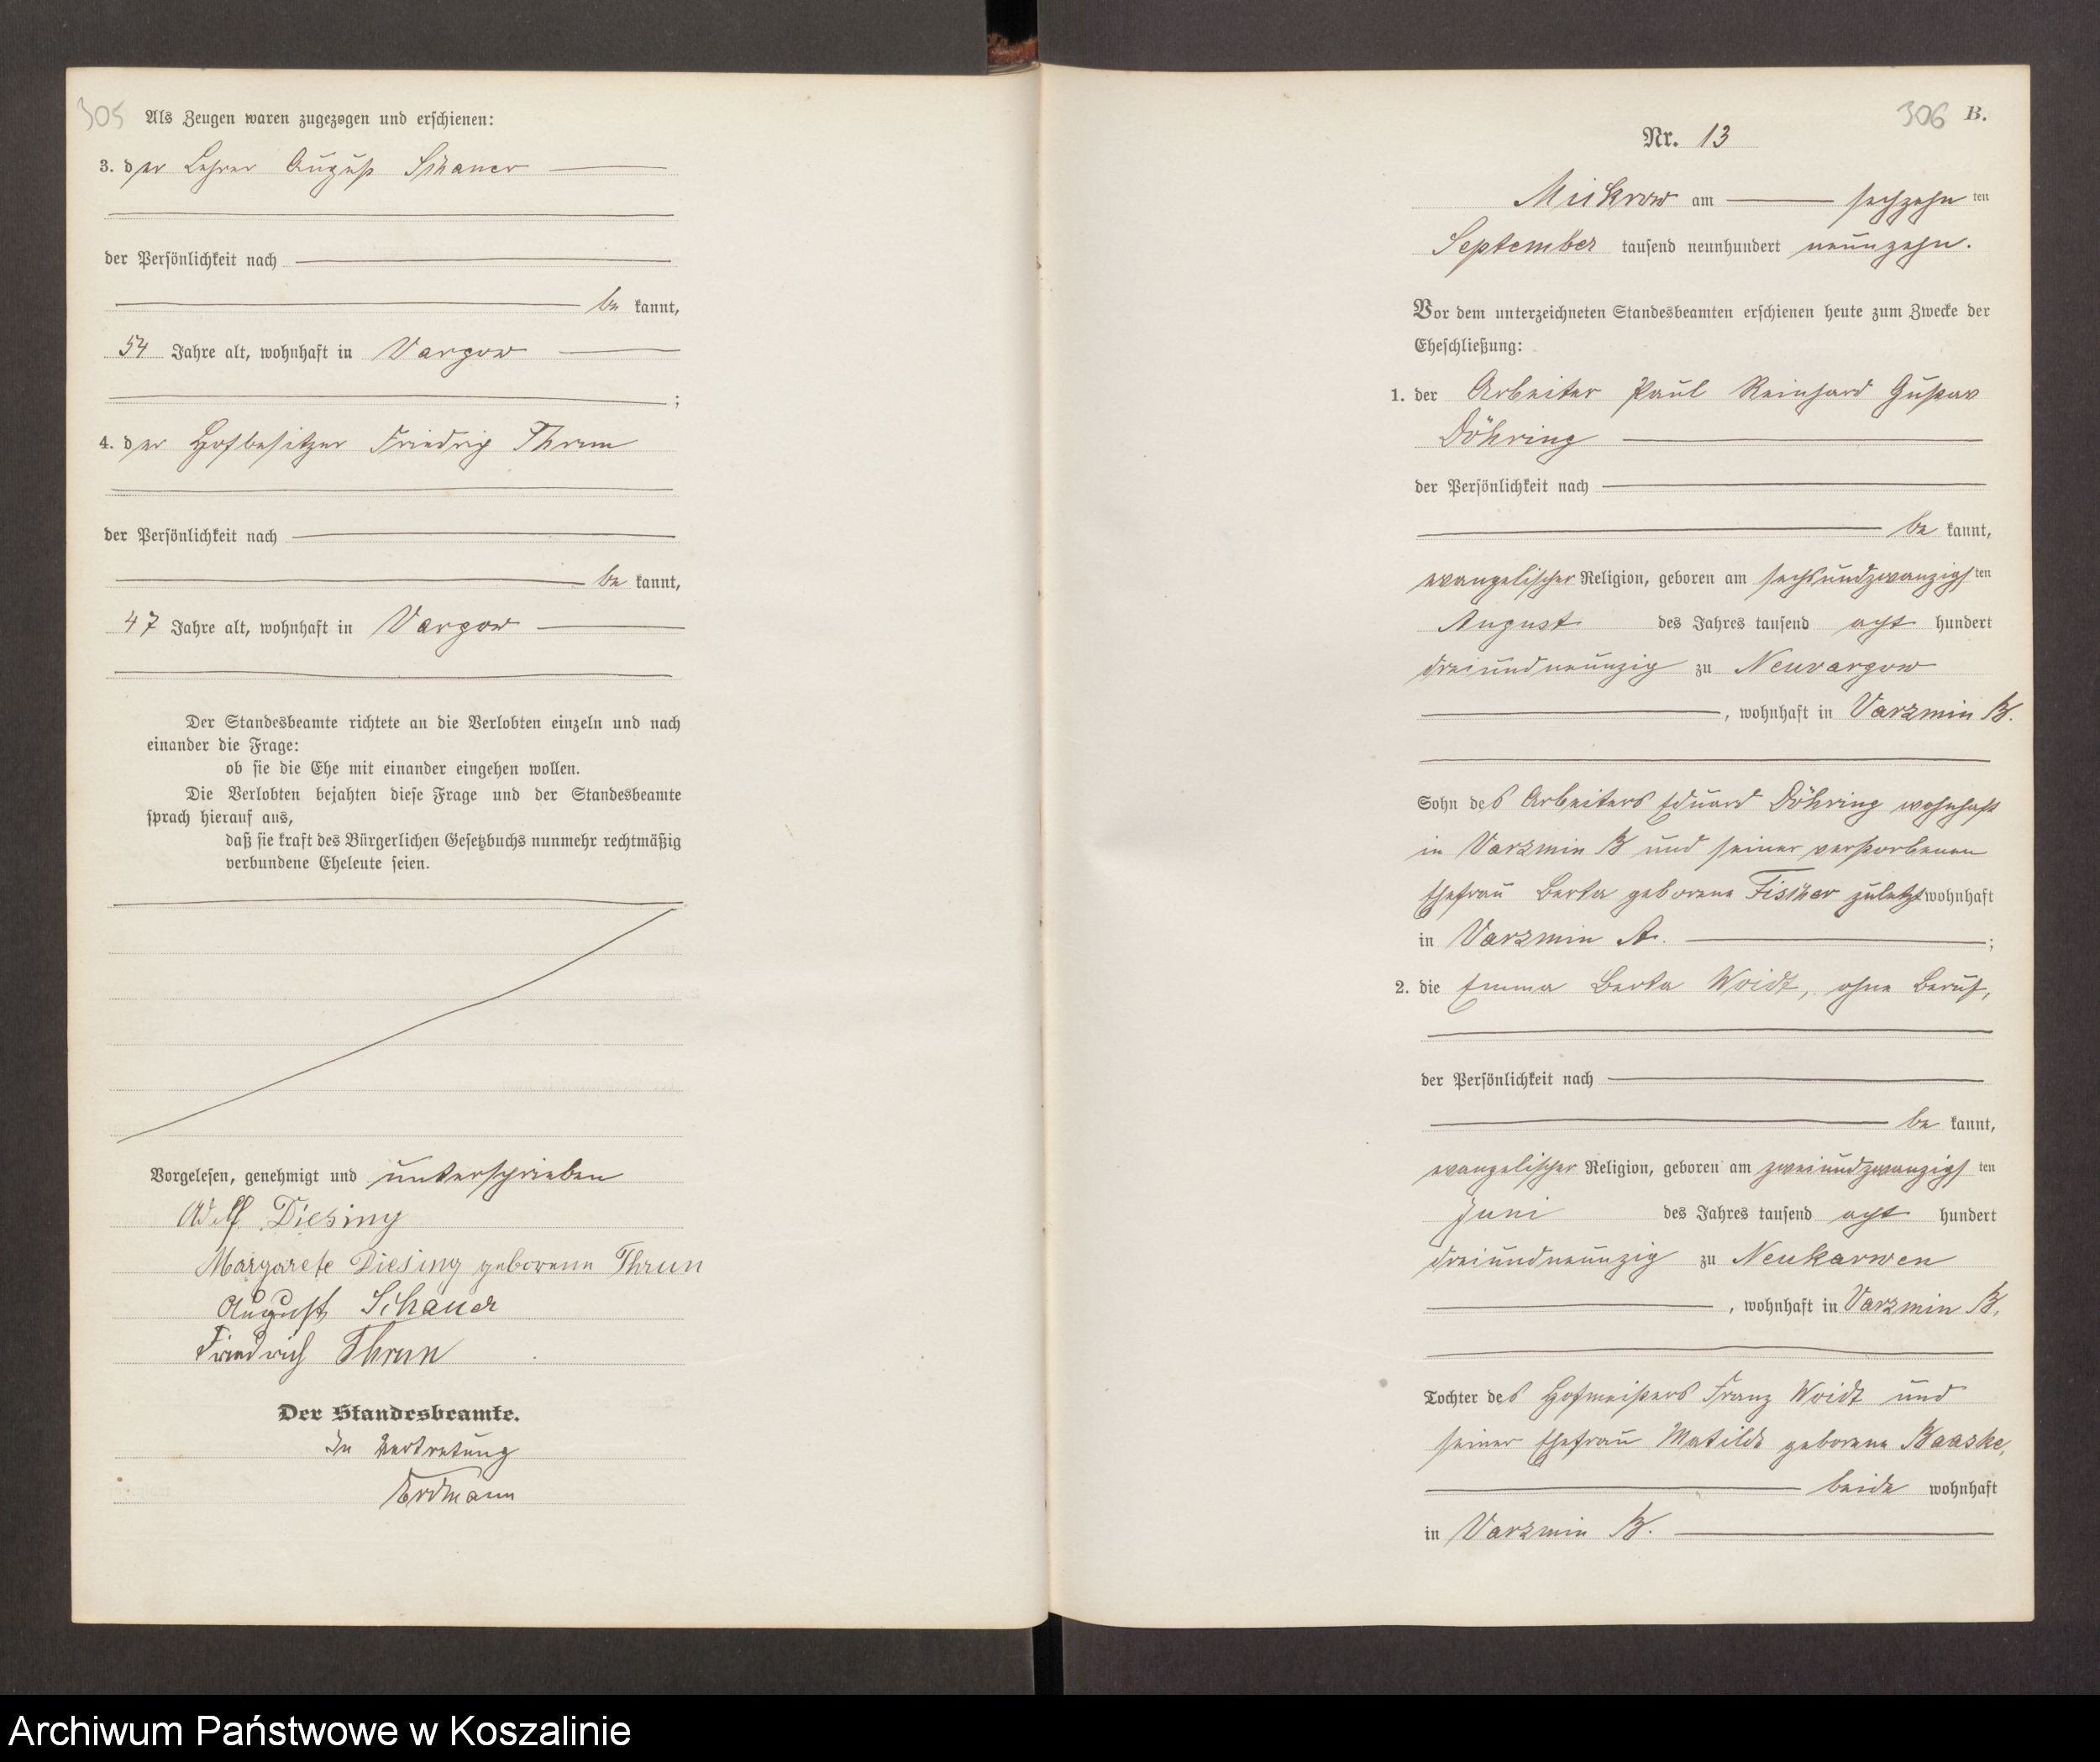 305 Als Zeugen waren zugezogen und erschienen:
3. der Lehrer August Schauer
der Persönlichkeit nach
be kannt,
54 Jahre alt, wohnhaft in Vargow
;
4. der Hofbesitzer Friedrich Thrun
der Persönlichkeit nach
be kannt,
47 Jahre alt, wohnhaft in Vargow
Der Standesbeamte richtete an die Verlobten einzeln und nach
einander die Frage:
ob sie die Ehe mit einander eingehen wollen.
Die Verlobten bejahten diese Frage und der Standesbeamte
sprach hierauf aus,
daß sie kraft des Bürgerlichen Gesetzbuchs nunmehr rechtmäßig
verbundene Eheleute seien.
Vorgelesen, genehmigt und unterschrieben
Adolf Diesing
Margarete Diesing geborene Thrun
August Schauer
Friedrich Thrun
Der Standesbeamte.
In Vertretung
Erdmann
306 B.
Nr. 13
Mickrow am sechzehn ten
September tausend neunhundert neunzehn.
Vor dem unterzeichneten Standesbeamten erschienen heute zum Zwecke der
Eheschließung:
1. der Arbeiter Paul Reinhard Gustav
Döhring
der Persönlichkeit nach
be kannt,
evangelischer Religion, geboren am sechsundzwanzigsten
August des Jahres tausend acht hundert
dreiundneunzig zu Neuvargow
, wohnhaft in Varzmin B.
Sohn des Arbeiters Eduard Döhring wohnhaft
in Varzmin B und seiner verstorbenen
Ehefrau Berta geborene Fischer zuletzt wohnhaft
in Varzmin A. ;
2. die Emma Berta Woidt, ohne Beruf,
der Persönlichkeit nach
be kannt,
evangelischer Religion, geboren am zweiundzwanzigsten
Juni des Jahres tausend acht hundert
dreiundneunzig zu Neukarwen
, wohnhaft in Varzmin B,
Tochter des Hofmeisters Franz Woidt und
seiner Ehefrau Matilde geborene Baaske,
beide wohnhaft
in Varzmin B.
Archiwum Państwowe w Koszalinie